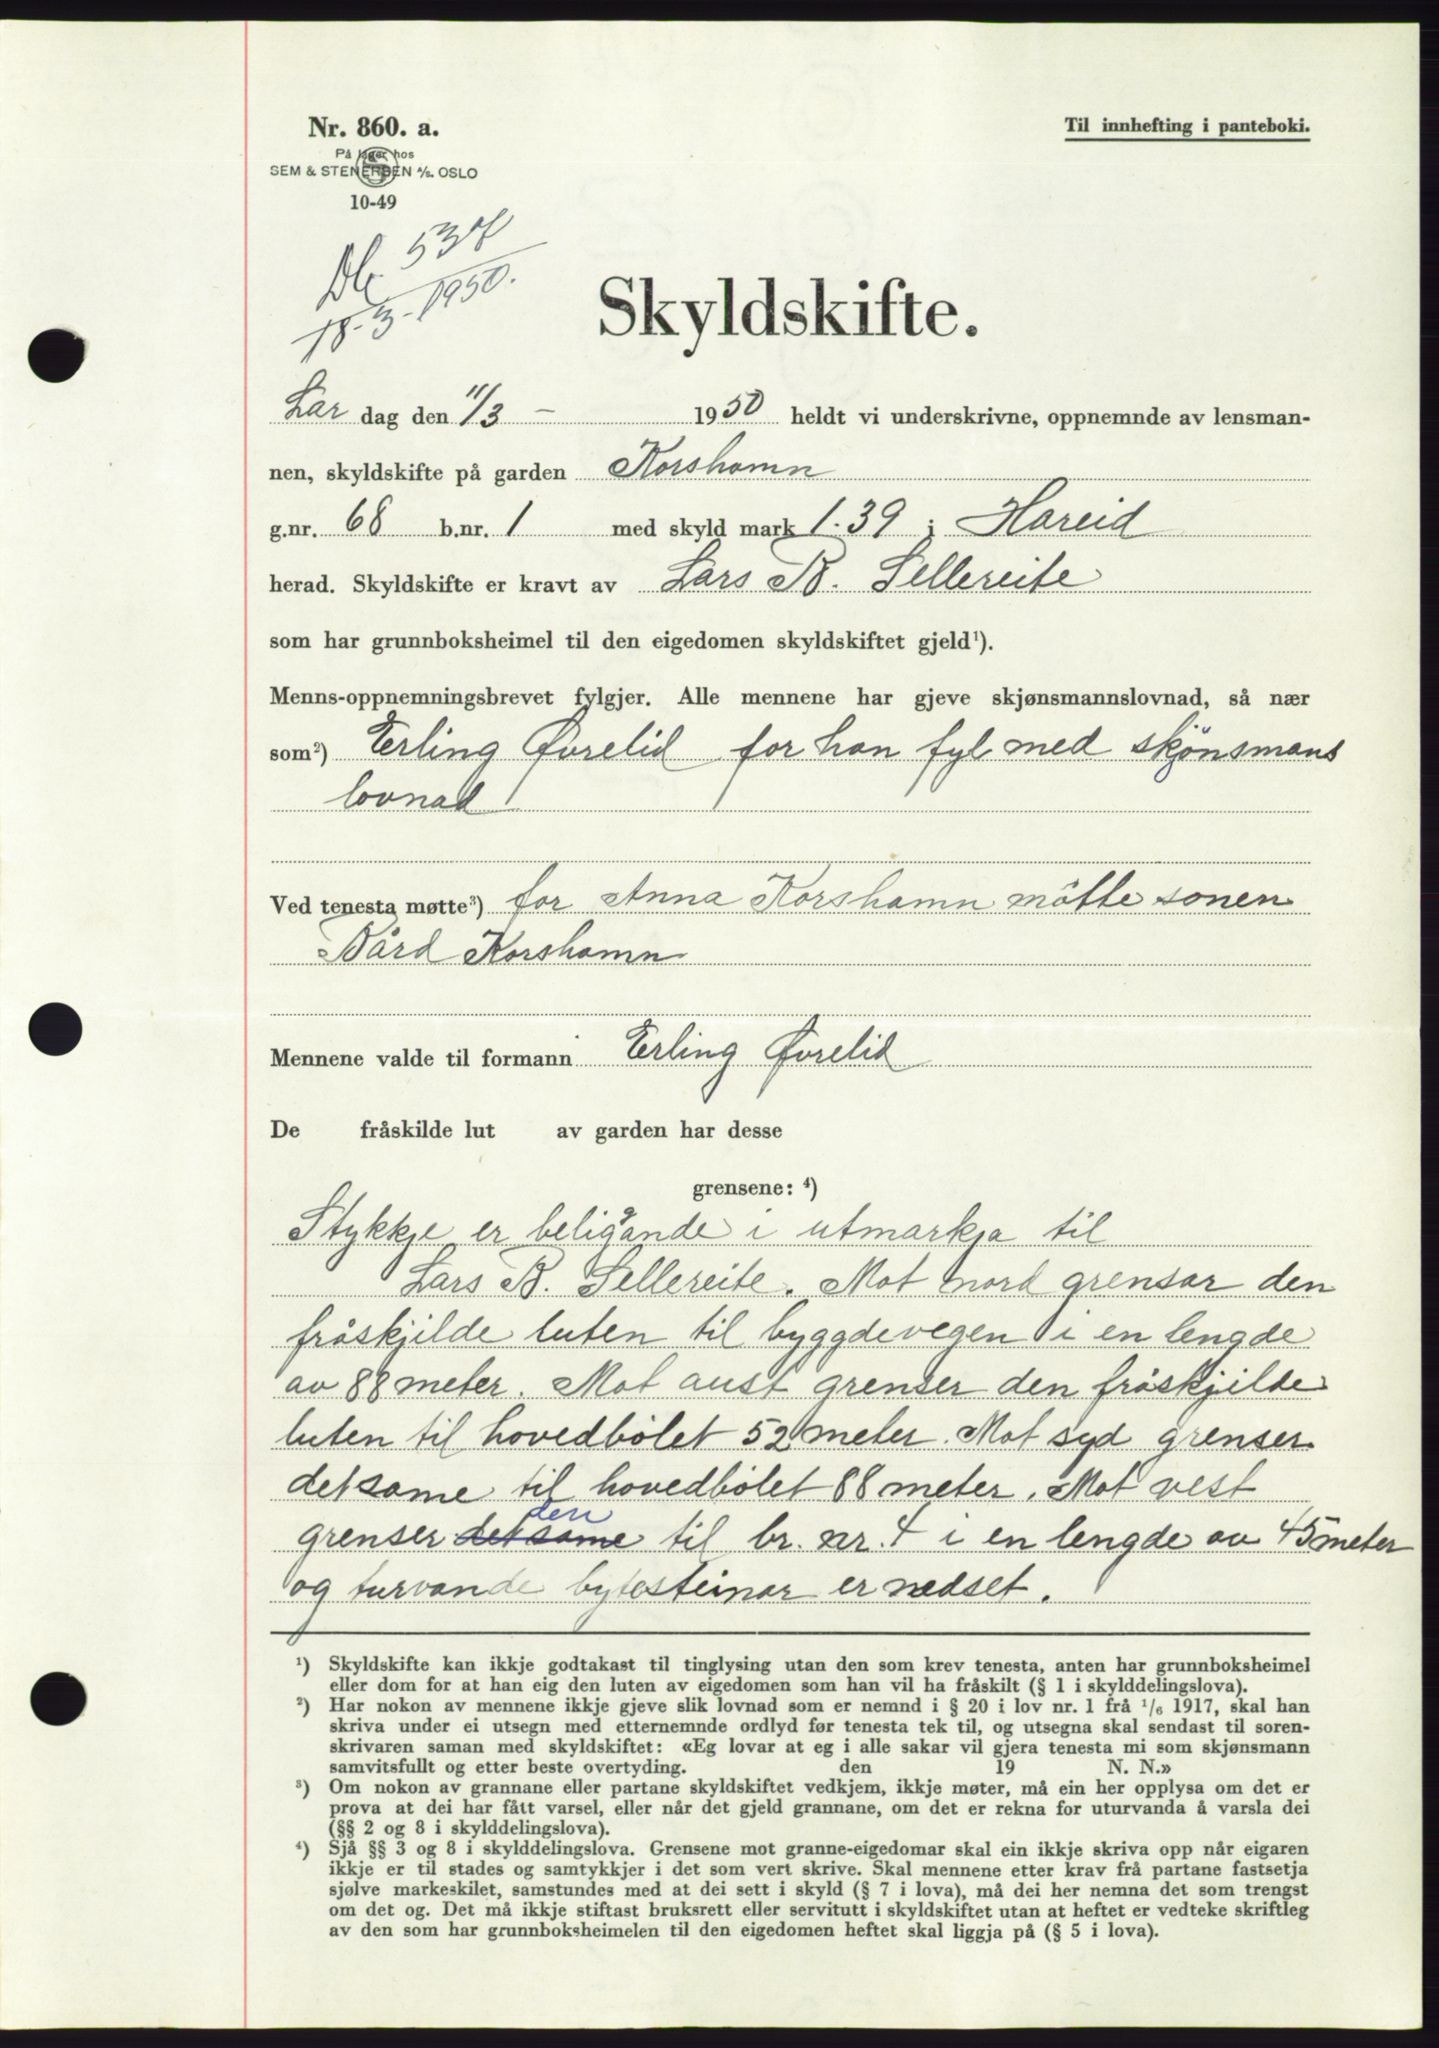 Nr. 860. a.
Til innhefting i panteboki.
På lager hos
SEM & STENERSEN A/S. OSLO
10-49
Db 537
18-3-1950.
Skyldskifte.
Lar dag den 11/3 - 1950 heldt vi underskrivne, oppnemnde av lensman-
nen, skyldskifte på garden Korshamn
g.nr. 68 b.nr. 1 med skyld mark 1.39 i Hareid
herad. Skyldskifte er kravt av Lars B. Sellereite
som har grunnboksheimel til den eigedomen skyldskiftet gjeld¹).
Menns-oppnemningsbrevet fylgjer. Alle mennene har gjeve skjønsmannslovnad, så nær
som²) Erling Øvrelid for han fyl med skjönsmans
lovnad
Ved tenesta møtte³) for Anna Korshamn mötte sonen
Bård Korshamn
Mennene valde til formann Erling Øvrelid
De fråskilde lut av garden har desse
grensene: ⁴)
Stykkje er beliggande i utmarkja til
Lars B. Sellereite. Mot nord grensar den
fråskjilde luten til byggdevegen i en lengde
av 88 meter. Mot aust grenser den fråskjilde
luten til hovedbølet 52 meter. Mot syd grenser
detsame til hovedbølet 88 meter. Mot vest
den
grenser detsame til br. nr. 4 i en lengde av 45 meter
og turvande bytesteinar er nedset.
¹) Skyldskifte kan ikkje godtakast til tinglysing utan den som krev tenesta, anten har grunnboksheimel
eller dom for at han eig den luten av eigedomen som han vil ha fråskilt (§ 1 i skylddelingslova).
²) Har nokon av mennene ikkje gjeve slik lovnad som er nemnd i § 20 i lov nr. 1 frå 1/6 1917, skal han
skriva under ei utsegn med etternemnde ordlyd før tenesta tek til, og utsegna skal sendast til soren-
skrivaren saman med skyldskiftet: «Eg lovar at eg i alle sakar vil gjera tenesta mi som skjønsmann
samvitsfullt og etter beste overtyding. den 19 N. N.»
³) Om nokon av grannane eller partane skyldskiftet vedkjem, ikkje møter, må ein her opplysa om det er
prova at dei har fått varsel, eller når det gjeld grannane, om det er rekna for uturvanda å varsla dei
(§§ 2 og 8 i skylddelingslova).
⁴) Sjå §§ 3 og 8 i skylddelingslova. Grensene mot granne-eigedomar skal ein ikkje skriva opp når eigaren
ikkje er til stades og samtykkjer i det som vert skrive. Skal mennene etter krav frå partane fastsetja
sjølve markeskilet, samstundes med at dei sett i skyld (§ 7 i lova), må dei her nemna det som trengst
om det og. Det må ikkje stiftast bruksrett eller servitutt i skyldskiftet utan at heftet er vedteke skriftleg
av den som har grunnboksheimelen til den eigedomen heftet skal liggja på (§ 5 i lova).